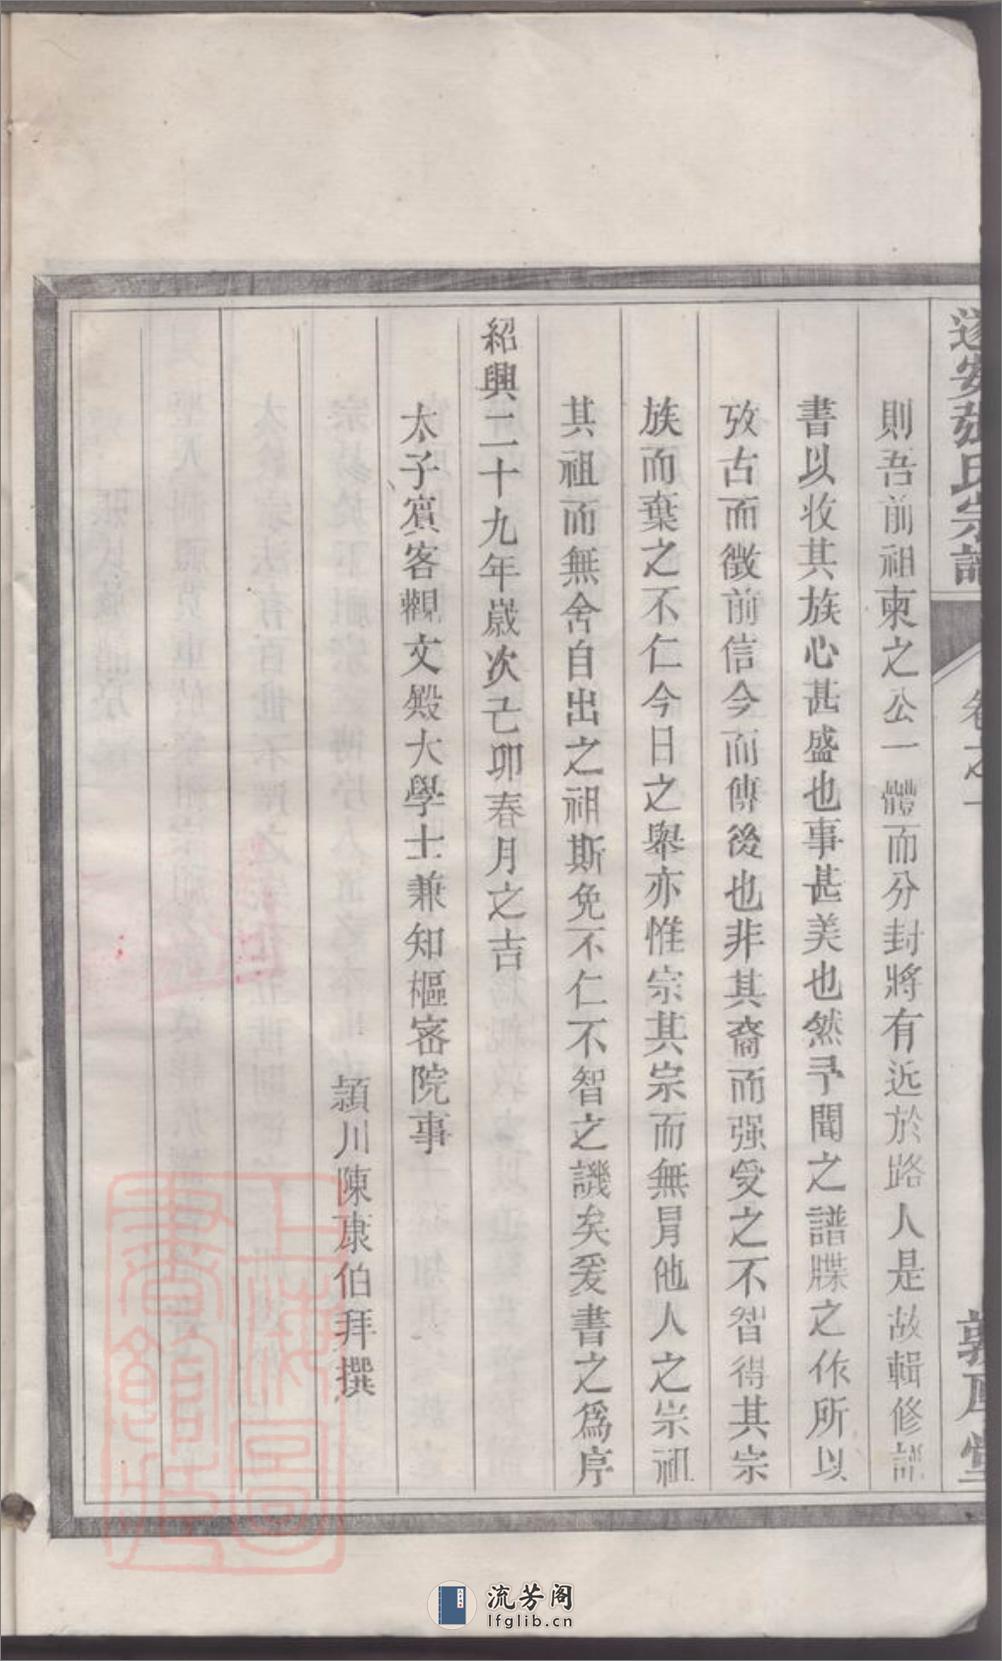 遂安張氏宗譜 卷之一 敦厚堂
則吾前祖東之公一體而分封將有近於路人是故輯修譜
書以收其族心甚盛也事甚美也然予聞之譜牒之作所以
攷古而徵前信今而傳後也非其裔而强受之不智得其宗
族而棄之不仁今日之舉亦惟宗其宗而無冒他人之宗祖
其祖而無舍自出之祖斯免不仁不智之譏矣爰書之為序
紹興二十九年歲次己卯春月之吉
太子賓客觀文殿大學士兼知樞密院事
潁川陳康伯拜撰
上海圖書館藏
流芳阁
lfglib.cn